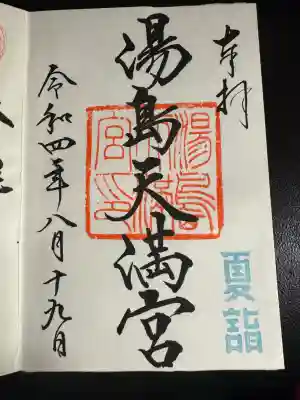 奉拝
湯島天満宮
令和四年八月十九日
夏詣